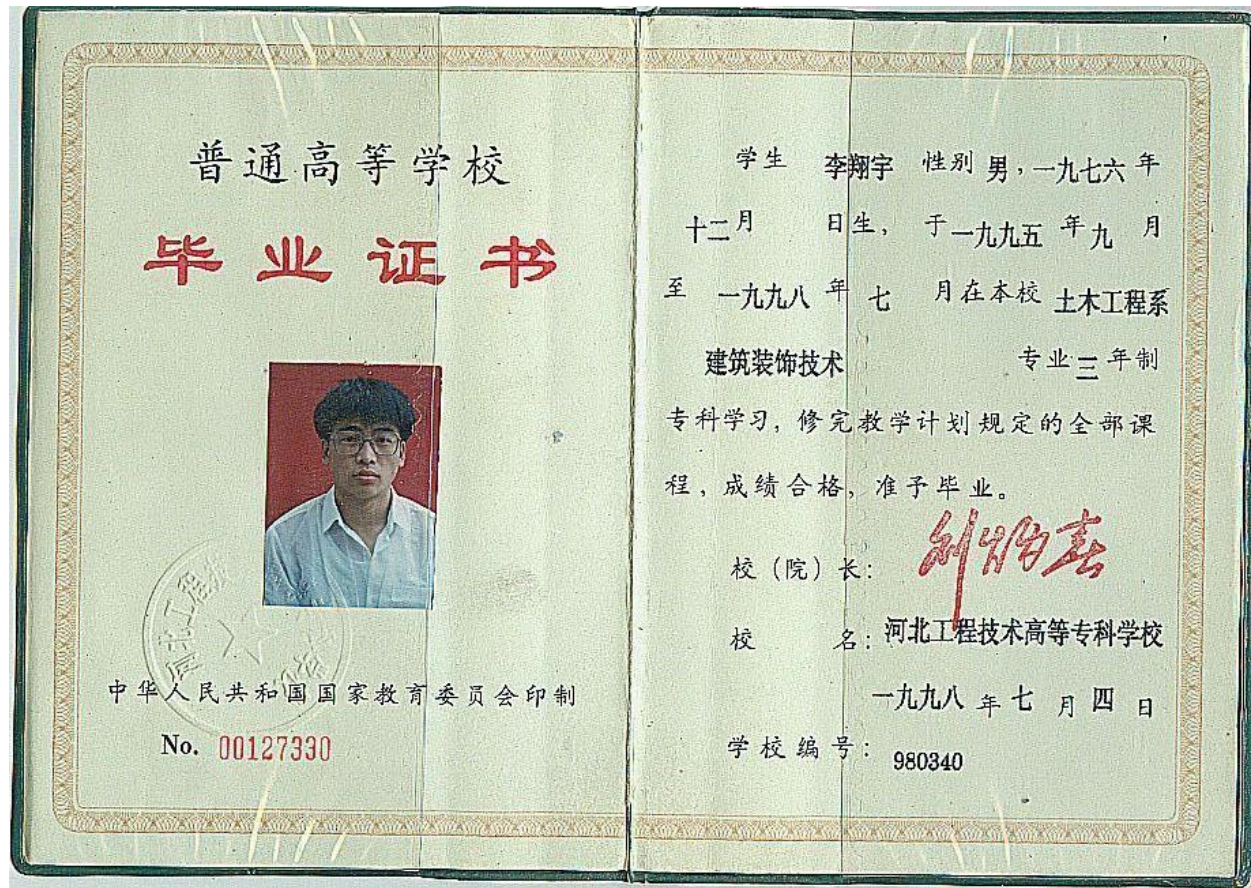 普通高等学校
毕业证书
中华人民共和国国家教育委员会印制
No. 00127330
学生 李翔宇 性别 男，一九七六 年
十二月 日生，于一九九五 年 九 月
至 一九九八 年 七 月在本校 土木工程系
建筑装饰技术 专业 三 年制
专科学习，修完教学计划规定的全部课
程，成绩合格，准予毕业。
校（院）长：
校 名：河北工程技术高等专科学校
一九九八 年 七 月 四 日
学校编号：980340